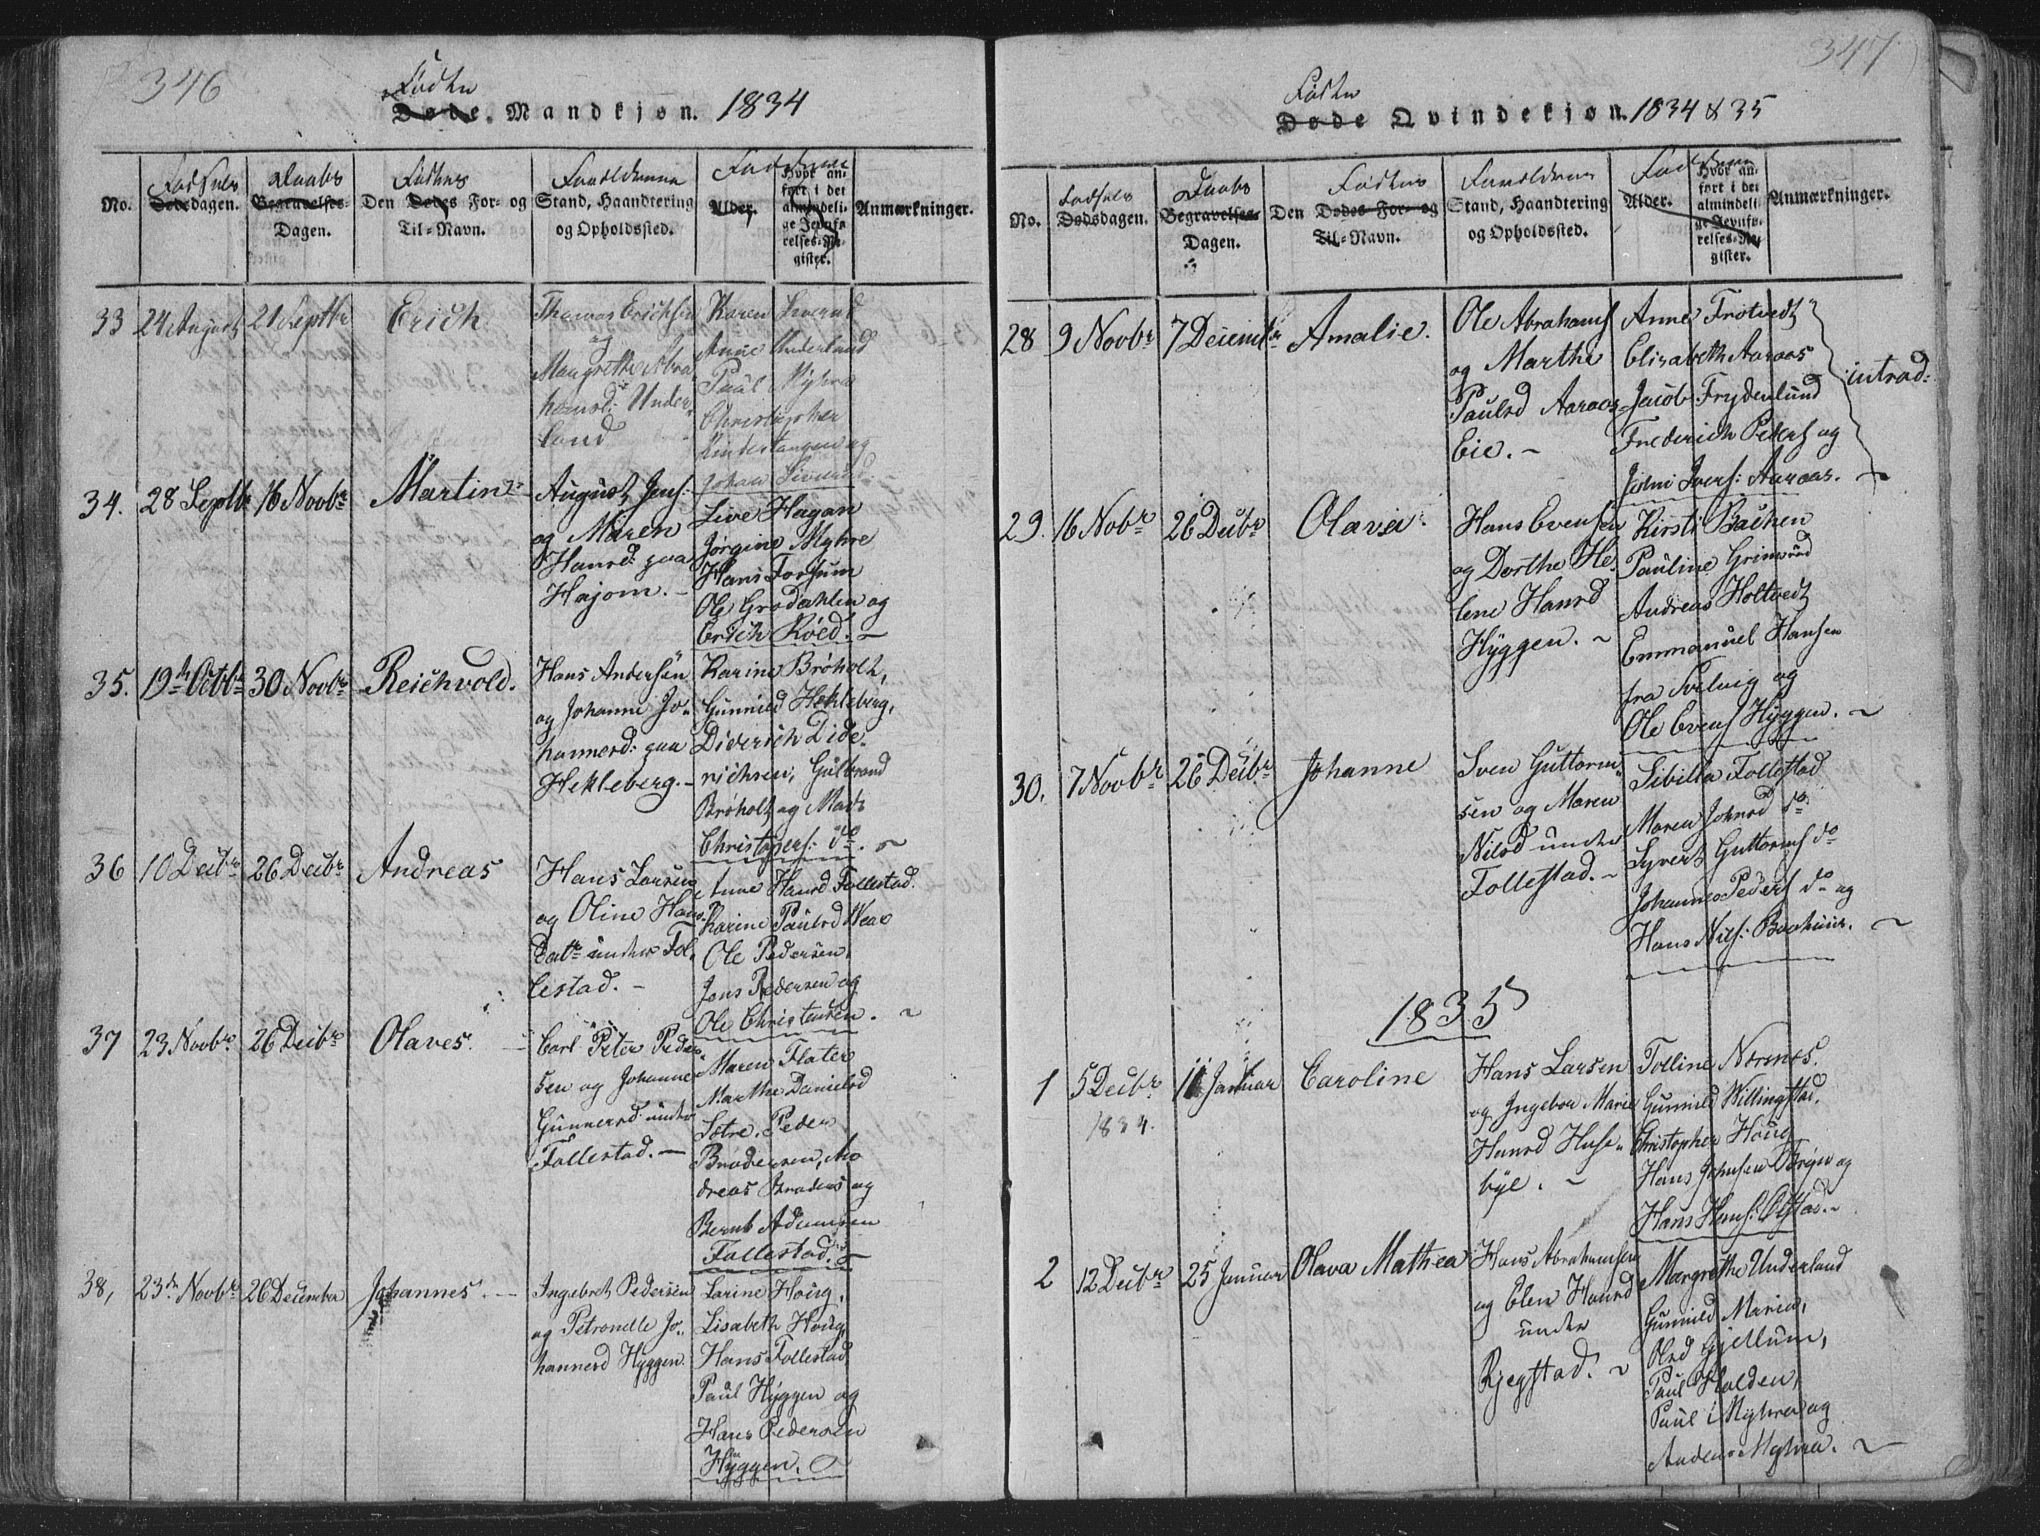 346
Fødte
Døde. Mandkjøn. 1834
No.
Fødsels
Dødsdagen.
Daabs
Begravelses-
Dagen.
Fødtes
Den Dødes For- og
Til-Navn.
Forældrenes
Stand, Haandtering
og Opholdssted.
Faddere
Alder.
Hvor an-
ført i det
almindeli-
ge Jevnfø-
relses-Re-
gister.
Anmærkninger.
33 24 August 21 Septbr Erich
Thomas Erichsen
og
Margrethe Abra-
hamsd: Under-
land
Karen
Anne Underland
Paul Myhre
Christopher
og
Johan
34. 28 Septbr 16 Novbr Martin
August Jens:
og Maren
Hansd: paa
Hajom.
Live Hagan
Jørgine Myhre
Hans Forsum
Ole Grodahlen og
Erich Röed.
35. 19de Octbr 30 Novbr Reichvold.
Hans Andersen
og Johanne Jo-
hannesd: paa
Hekleberg.
Karine Brøholt,
Gunnild Hekleberg,
Diderich Dide-
richsen, Gulbrand
Brøholt og Mads
Christophers: do.
36 10 Decbr 26 Decbr Andreas
Hans Larsen
og Oline Hans
Datr under Fol-
lestad.
Anne Hansd Follestad.
Karine Paulsd Weae
Ole Pedersen,
Jens Pedersen og
Ole Christensen.
37 23 Novbr 26 Decbr Olaves.
Carl Peter Peder-
sen og Johanne
Gunnersd under
Follestad.
Maren Flater
Marthe Danielsd
Sætre. Peder
Brodersen, An-
dreas Broders og
Bernt Adamsen
Follestad.
38, 23de Novbr 26 December Johannes.
Ingebret Pedersen
og Petronelle Jo-
hannesd Hyggen
Larine Houg,
Lisabeth Houg,
Hans Follestad
Paul Hyggen og
Hans Pedersen
Hyggen.
347
Fødte
Døde Qvindekjøn. 1834 & 35
No.
Fødsels
Dødsdagen.
Daabs
Begravelses-
Dagen.
Fødtes
Den Dødes For- og
Til-Navn.
Forældrenes
Stand, Haandtering
og Opholdssted.
Faddere
Alder.
Hvor an-
ført i det
almindeli-
ge Jevnfø-
relses-Re-
gister.
Anmærkninger.
28 9 Novbr 7 Decembr Amalie.
Ole Abrahams
og Marthe
Paulsd Aaraas
Eie.
Anne Frøtvedt
Elisabeth Aaraas
Jacob Frydenlund
Frederich Peders og
Ivers: Aaraas.
introd:
29. 16 Nobr 26 Decbr Olava.
Hans Evensen
og Dorthe He-
lene Hansd
Hyggen.
Kirsti Bachen
Pauline Grimsrud
Andreas Holtvedt
Emmanuel Hansen
fra Svelvig og
Ole Evens Hyggen.
30. 7 Novbr 26 Decbr Johanne
Sven Guttorm-
sen og Maren
Nilsd under
Follestad.
Sibilla Follestad
Maren Johnsd do
Syvert Guttorms do
Johannes Peders do og
Hans Nils:
1835
1 5 Decbr 11 Januar Caroline
1834.
Hans Larsen
og Ingebor Marie
Hansd Huse-
bye.
Tolline Nærsnes.
Gunnild Willingstad,
Christopher Houg
Hans Johnsen og
Hans Hans:
2 12 Decbr 25 Januar Olava Mathea
Hans Abrahamsen
og Elen Hansd
under
Rjegstad.
Margrethe Underland
Gunnild Maria,
Olsd Gjellum,
Paul Halden,
Paul i Myhra og
Anders Myhra.